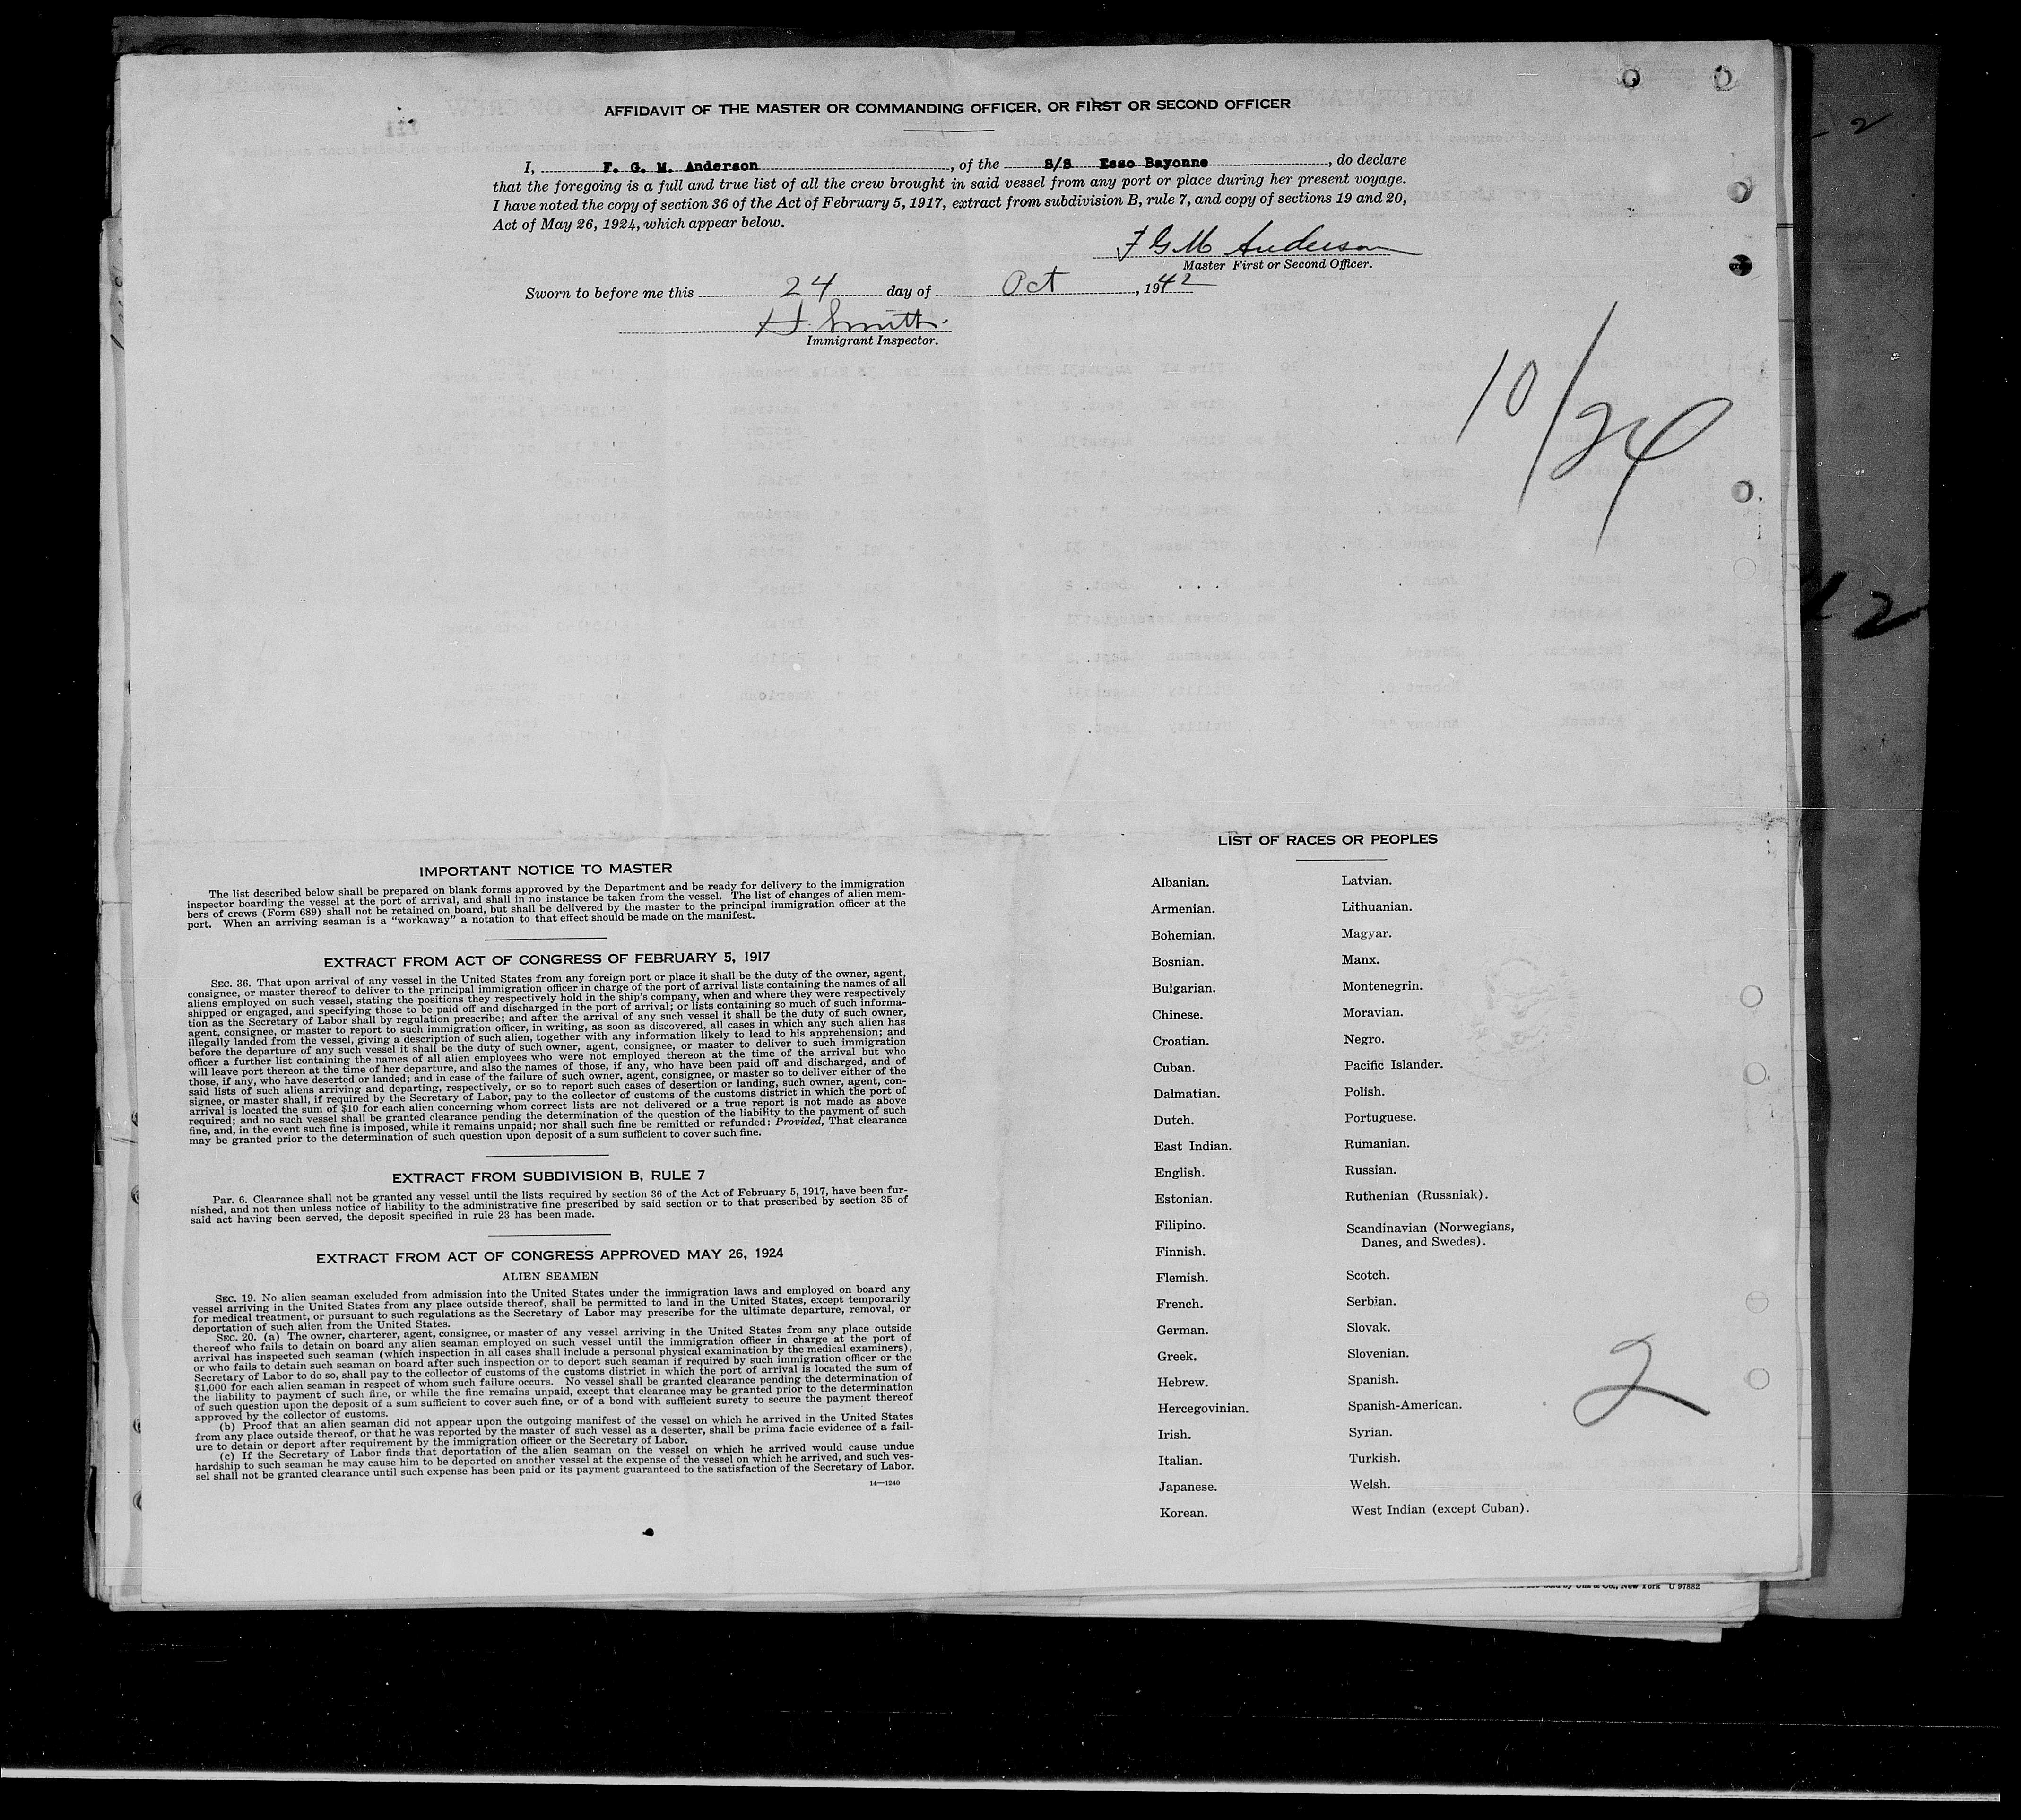 AFFIDAVIT OF THE MASTER OR COMMANDING OFFICER, OR FIRST OR SECOND OFFICER
I, F. G. M. Anderson, of the S/S Esso Bayonne, do declare
that the foregoing is a full and true list of all the crew brought in said vessel from any port or place during her present voyage.
I have noted the copy of section 36 of the Act of February 5, 1917, extract from subdivision B, rule 7, and copy of sections 19 and 20,
Act of May 26, 1924, which appear below.
F G M Anderson
Master First or Second Officer.
Sworn to before me this 24 day of Oct, 1942
H. Smith.
Immigrant Inspector.
10/24
IMPORTANT NOTICE TO MASTER
The list described below shall be prepared on blank forms approved by the Department and be ready for delivery to the immigration
inspector boarding the vessel at the port of arrival, and shall in no instance be taken from the vessel. The list of changes of alien mem-
bers of crews (Form 689) shall not be retained on board, but shall be delivered by the master to the principal immigration officer at the
port. When an arriving seaman is a "workaway" a notation to that effect should be made on the manifest.
EXTRACT FROM ACT OF CONGRESS OF FEBRUARY 5, 1917
SEC. 36. That upon arrival of any vessel in the United States from any foreign port or place it shall be the duty of the owner, agent,
consignee, or master thereof to deliver to the principal immigration officer in charge of the port of arrival lists containing the names of all
aliens employed on such vessel, stating the positions they respectively hold in the ship's company, when and where they were respectively
shipped or engaged, and specifying those to be paid off and discharged in the port of arrival; or lists containing so much of such informa-
tion as the Secretary of Labor shall by regulation prescribe; and after the arrival of any such vessel it shall be the duty of such owner,
agent, consignee, or master to report to such immigration officer, in writing, as soon as discovered, all cases in which any such alien has
illegally landed from the vessel, giving a description of such alien, together with any information likely to lead to his apprehension; and
before the departure of any such vessel it shall be the duty of such owner, agent, consignee, or master to deliver to such immigration
officer a further list containing the names of all alien employees who were not employed thereon at the time of the arrival but who
will leave port thereon at the time of her departure, and also the names of those, if any, who have been paid off and discharged, and of
those, if any, who have deserted or landed; and in case of the failure of such owner, agent, consignee, or master so to deliver either of the
said lists of such aliens arriving and departing, respectively, or so to report such cases of desertion or landing, such owner, agent, con-
signee, or master shall, if required by the Secretary of Labor, pay to the collector of customs of the customs district in which the port of
arrival is located the sum of $10 for each alien concerning whom correct lists are not delivered or a true report is not made as above
required; and no such vessel shall be granted clearance pending the determination of the question of the liability to the payment of such
fine, and, in the event such fine is imposed, while it remains unpaid; nor shall such fine be remitted or refunded: Provided, That clearance
may be granted prior to the determination of such question upon deposit of a sum sufficient to cover such fine.
EXTRACT FROM SUBDIVISION B, RULE 7
Par. 6. Clearance shall not be granted any vessel until the lists required by section 36 of the Act of February 5, 1917, have been fur-
nished, and not then unless notice of liability to the administrative fine prescribed by said section or to that prescribed by section 35 of
said act having been served, the deposit specified in rule 23 has been made.
EXTRACT FROM ACT OF CONGRESS APPROVED MAY 26, 1924
ALIEN SEAMEN
SEC. 19. No alien seaman excluded from admission into the United States under the immigration laws and employed on board any
vessel arriving in the United States from any place outside thereof, shall be permitted to land in the United States, except temporarily
for medical treatment, or pursuant to such regulations as the Secretary of Labor may prescribe for the ultimate departure, removal, or
deportation of such alien from the United States.
SEC. 20. (a) The owner, charterer, agent, consignee, or master of any vessel arriving in the United States from any place outside
thereof who fails to detain on board any alien seaman employed on such vessel until the immigration officer in charge at the port of
arrival has inspected such seaman (which inspection in all cases shall include a personal physical examination by the medical examiners),
or who fails to detain such seaman on board after such inspection or to deport such seaman if required by such immigration officer or the
Secretary of Labor to do so, shall pay to the collector of customs of the customs district in which the port of arrival is located the sum of
$1,000 for each alien seaman in respect of whom such failure occurs. No vessel shall be granted clearance pending the determination of
the liability to payment of such fine, or while the fine remains unpaid, except that clearance may be granted prior to the determination
of such question upon the deposit of a sum sufficient to cover such fine, or of a bond with sufficient surety to secure the payment thereof
approved by the collector of customs.
(b) Proof that an alien seaman did not appear upon the outgoing manifest of the vessel on which he arrived in the United States
from any place outside thereof, or that he was reported by the master of such vessel as a deserter, shall be prima facie evidence of a fail-
ure to detain or deport after requirement by the immigration officer or the Secretary of Labor.
(c) If the Secretary of Labor finds that deportation of the alien seaman on the vessel on which he arrived would cause undue
hardship to such seaman he may cause him to be deported on another vessel at the expense of the vessel on which he arrived, and such ves-
sel shall not be granted clearance until such expense has been paid or its payment guaranteed to the satisfaction of the Secretary of Labor.
14—1240
LIST OF RACES OR PEOPLES
Albanian.
Armenian.
Bohemian.
Bosnian.
Bulgarian.
Chinese.
Croatian.
Cuban.
Dalmatian.
Dutch.
East Indian.
English.
Estonian.
Filipino.
Finnish.
Flemish.
French.
German.
Greek.
Hebrew.
Hercegovinian.
Irish.
Italian.
Japanese.
Korean.
Latvian.
Lithuanian.
Magyar.
Manx.
Montenegrin.
Moravian.
Negro.
Pacific Islander.
Polish.
Portuguese.
Rumanian.
Russian.
Ruthenian (Russniak).
Scandinavian (Norwegians,
Danes, and Swedes).
Scotch.
Serbian.
Slovak.
Slovenian.
Spanish.
Spanish-American.
Syrian.
Turkish.
Welsh.
West Indian (except Cuban).
2
New York U 97882